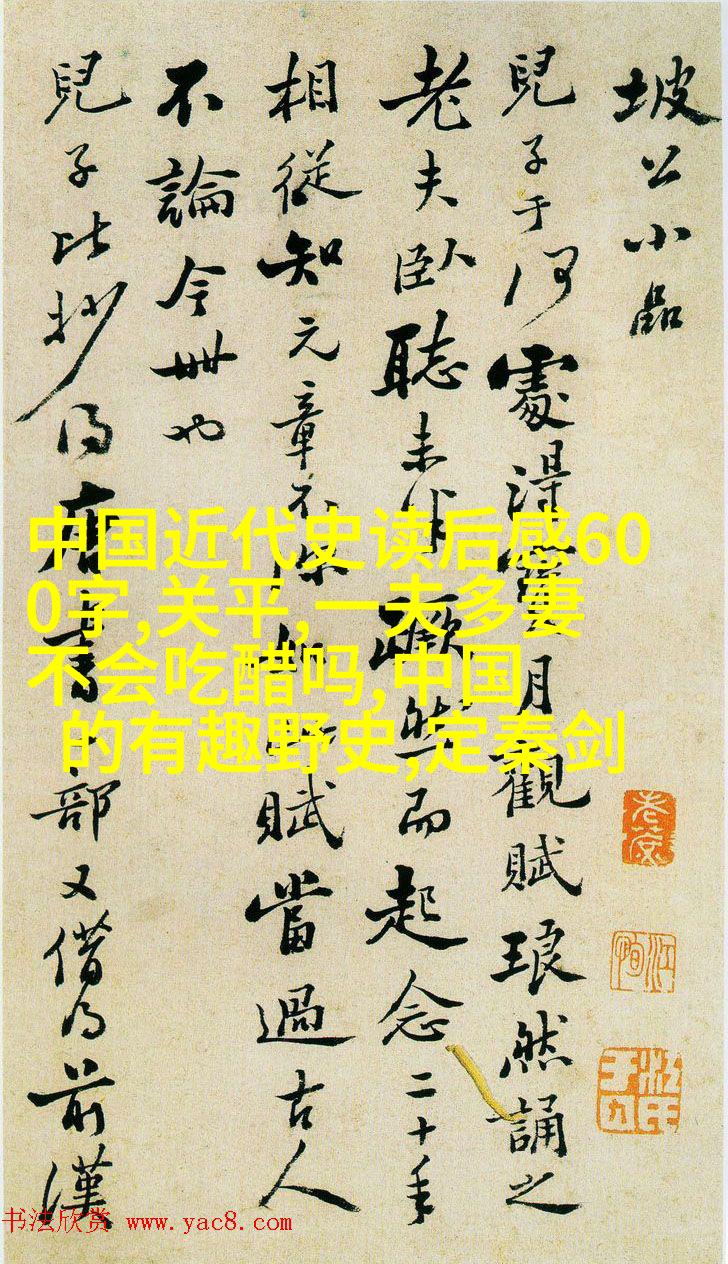 坡公小品
兒子于何處得寶月觀賦琅然誦之
老夫臥聽未半蹶然而起念二十年
相從知元章不賦當過古人
不論今世也
兒子比抄得唐書一部又借得前漢
中国近代史读后感60
0字,关平,一夫多妻
不会吃醋吗,中国
的有趣野史,定秦剑
书法欣赏 www.yac8.com